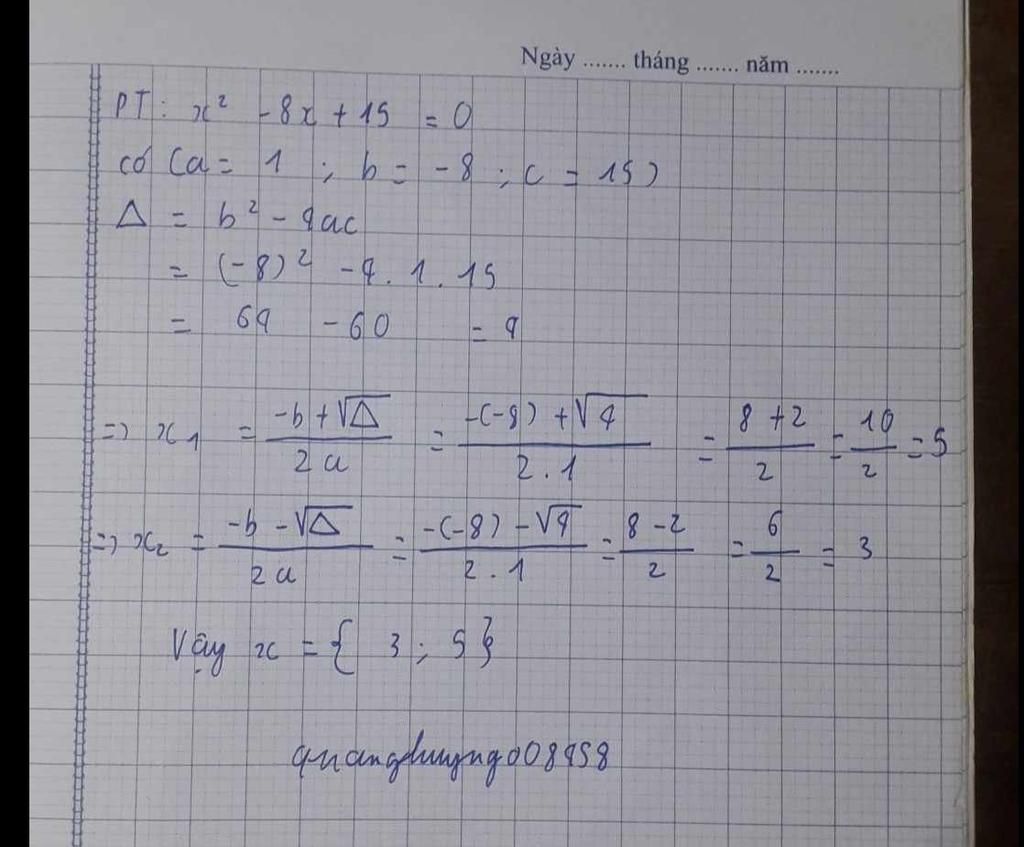 Ngày ....... tháng ....... năm .......
PT: x² - 8x + 15 = 0
có (a = 1 ; b = -8 ; c = 15)
Δ = b² - 4ac
= (-8)² - 4.1.15
= 64 - 60 = 4
=> x₁ = (-b + √Δ)/(2a) = (-(-8) + √4)/(2.1) = (8 + 2)/2 = 10/2 = 5
=> x₂ = (-b - √Δ)/(2a) = (-(-8) - √4)/(2.1) = (8 - 2)/2 = 6/2 = 3
Vậy x = { 3 ; 5 }